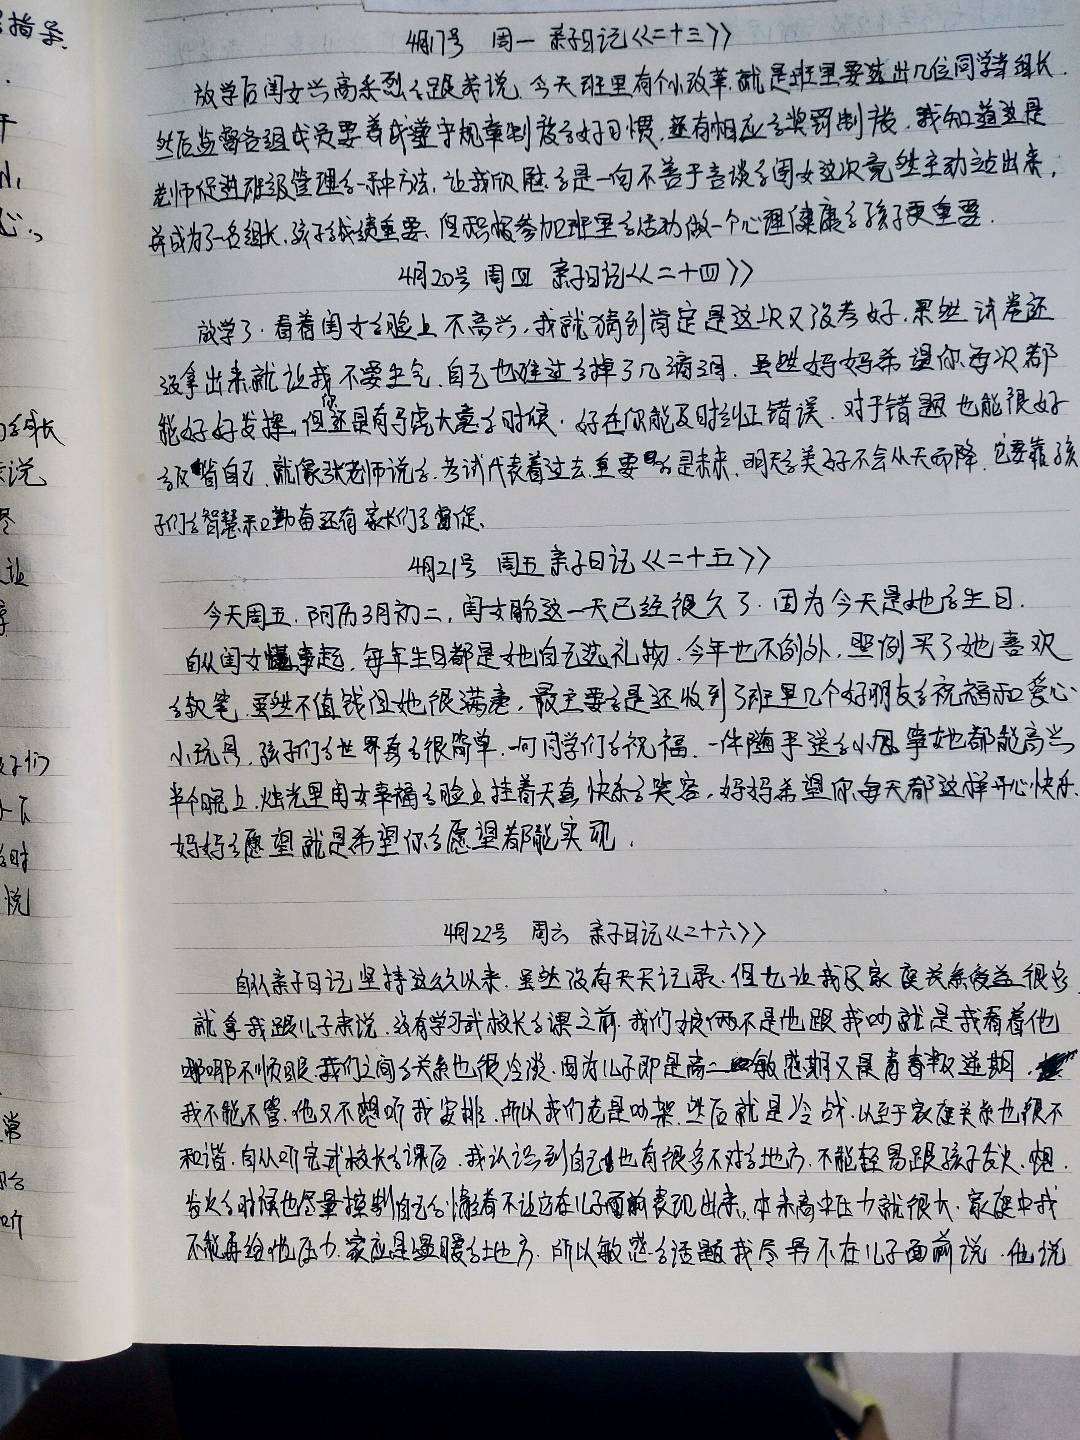 指导.
4月17号 周一 亲子日记《二十三》
放学后闺女兴高采烈的跟我说,今天班里有个小改革,就是班里要选出几位同学当组长.
然后监督各组成员要养成遵守规章制度的好习惯,还有相应的奖罚制度,我知道这是
老师促进班级管理的一种方法,让我欣慰的是一向不善于言谈的闺女这次竟然主动站出来,
并成为了一名组长,孩子的成绩重要,但积极参加班里的活动做一个心理健康的孩子更重要.
4月20号 周四 亲子日记《二十四》
放学了.看着闺女的脸上不高兴,我就猜到肯定是这次又没考好.果然试卷还
没拿出来就让我不要生气,自己也难过的掉了几滴泪,虽然妈妈希望你每次都
能好好发挥,但你还是有马虎大意的时候.好在你能及时纠正错误.对于错题也能很好
的反省自己,就像张老师说的.考试代表着过去,重要的是未来,明天的美好不会从天而降,它要靠孩
子们的智慧和勤奋还有家长们的督促、
4月21号 周五 亲子日记《二十五》
今天周五.阴历3月初二,闺女盼这一天已经很久了.因为今天是她的生日.
自从闺女懂事起,每年生日都是她自己选礼物.今年也不例外,照例买了她喜欢
的 笔,虽然不值钱但她很满意,最主要的是还收到了班里几个好朋友的祝福和爱心
小玩具,孩子们的世界真的很简单,一句同学们的祝福,一件随手送的小 她都能高兴
半个晚上,烛光里闺女幸福的脸上挂着天真快乐的笑容,妈妈希望你每天都这样开心快乐.
妈妈的愿望就是希望你的愿望都能实现.
4月22号 周六 亲子日记《二十六》
自从亲子日记坚持这么久以来,虽然没有天天记录,但也让我及家庭关系受益很多
就拿我跟儿子来说,没有学习武校长的课之前,我们娘俩不是他跟我吵就是我看着他
哪哪不顺眼,我们之间的关系也很冷淡,因为儿子即是高二敏感期又是青春叛逆期,
我不能不管,他又不想听我安排,所以我们老是吵架,然后就是冷战,以至于家庭关系也很不
和谐,自从听完武校长的课后,我认识到自己也有很多不对的地方,不能轻易跟孩子发火,想
发火的时候也尽量控制自己的情绪不让它在儿子面前表现出来,本来高中压力就很大,家庭中我
不能再给他压力,家应是温暖的地方,所以敏感的话题我尽量不在儿子面前说,他说